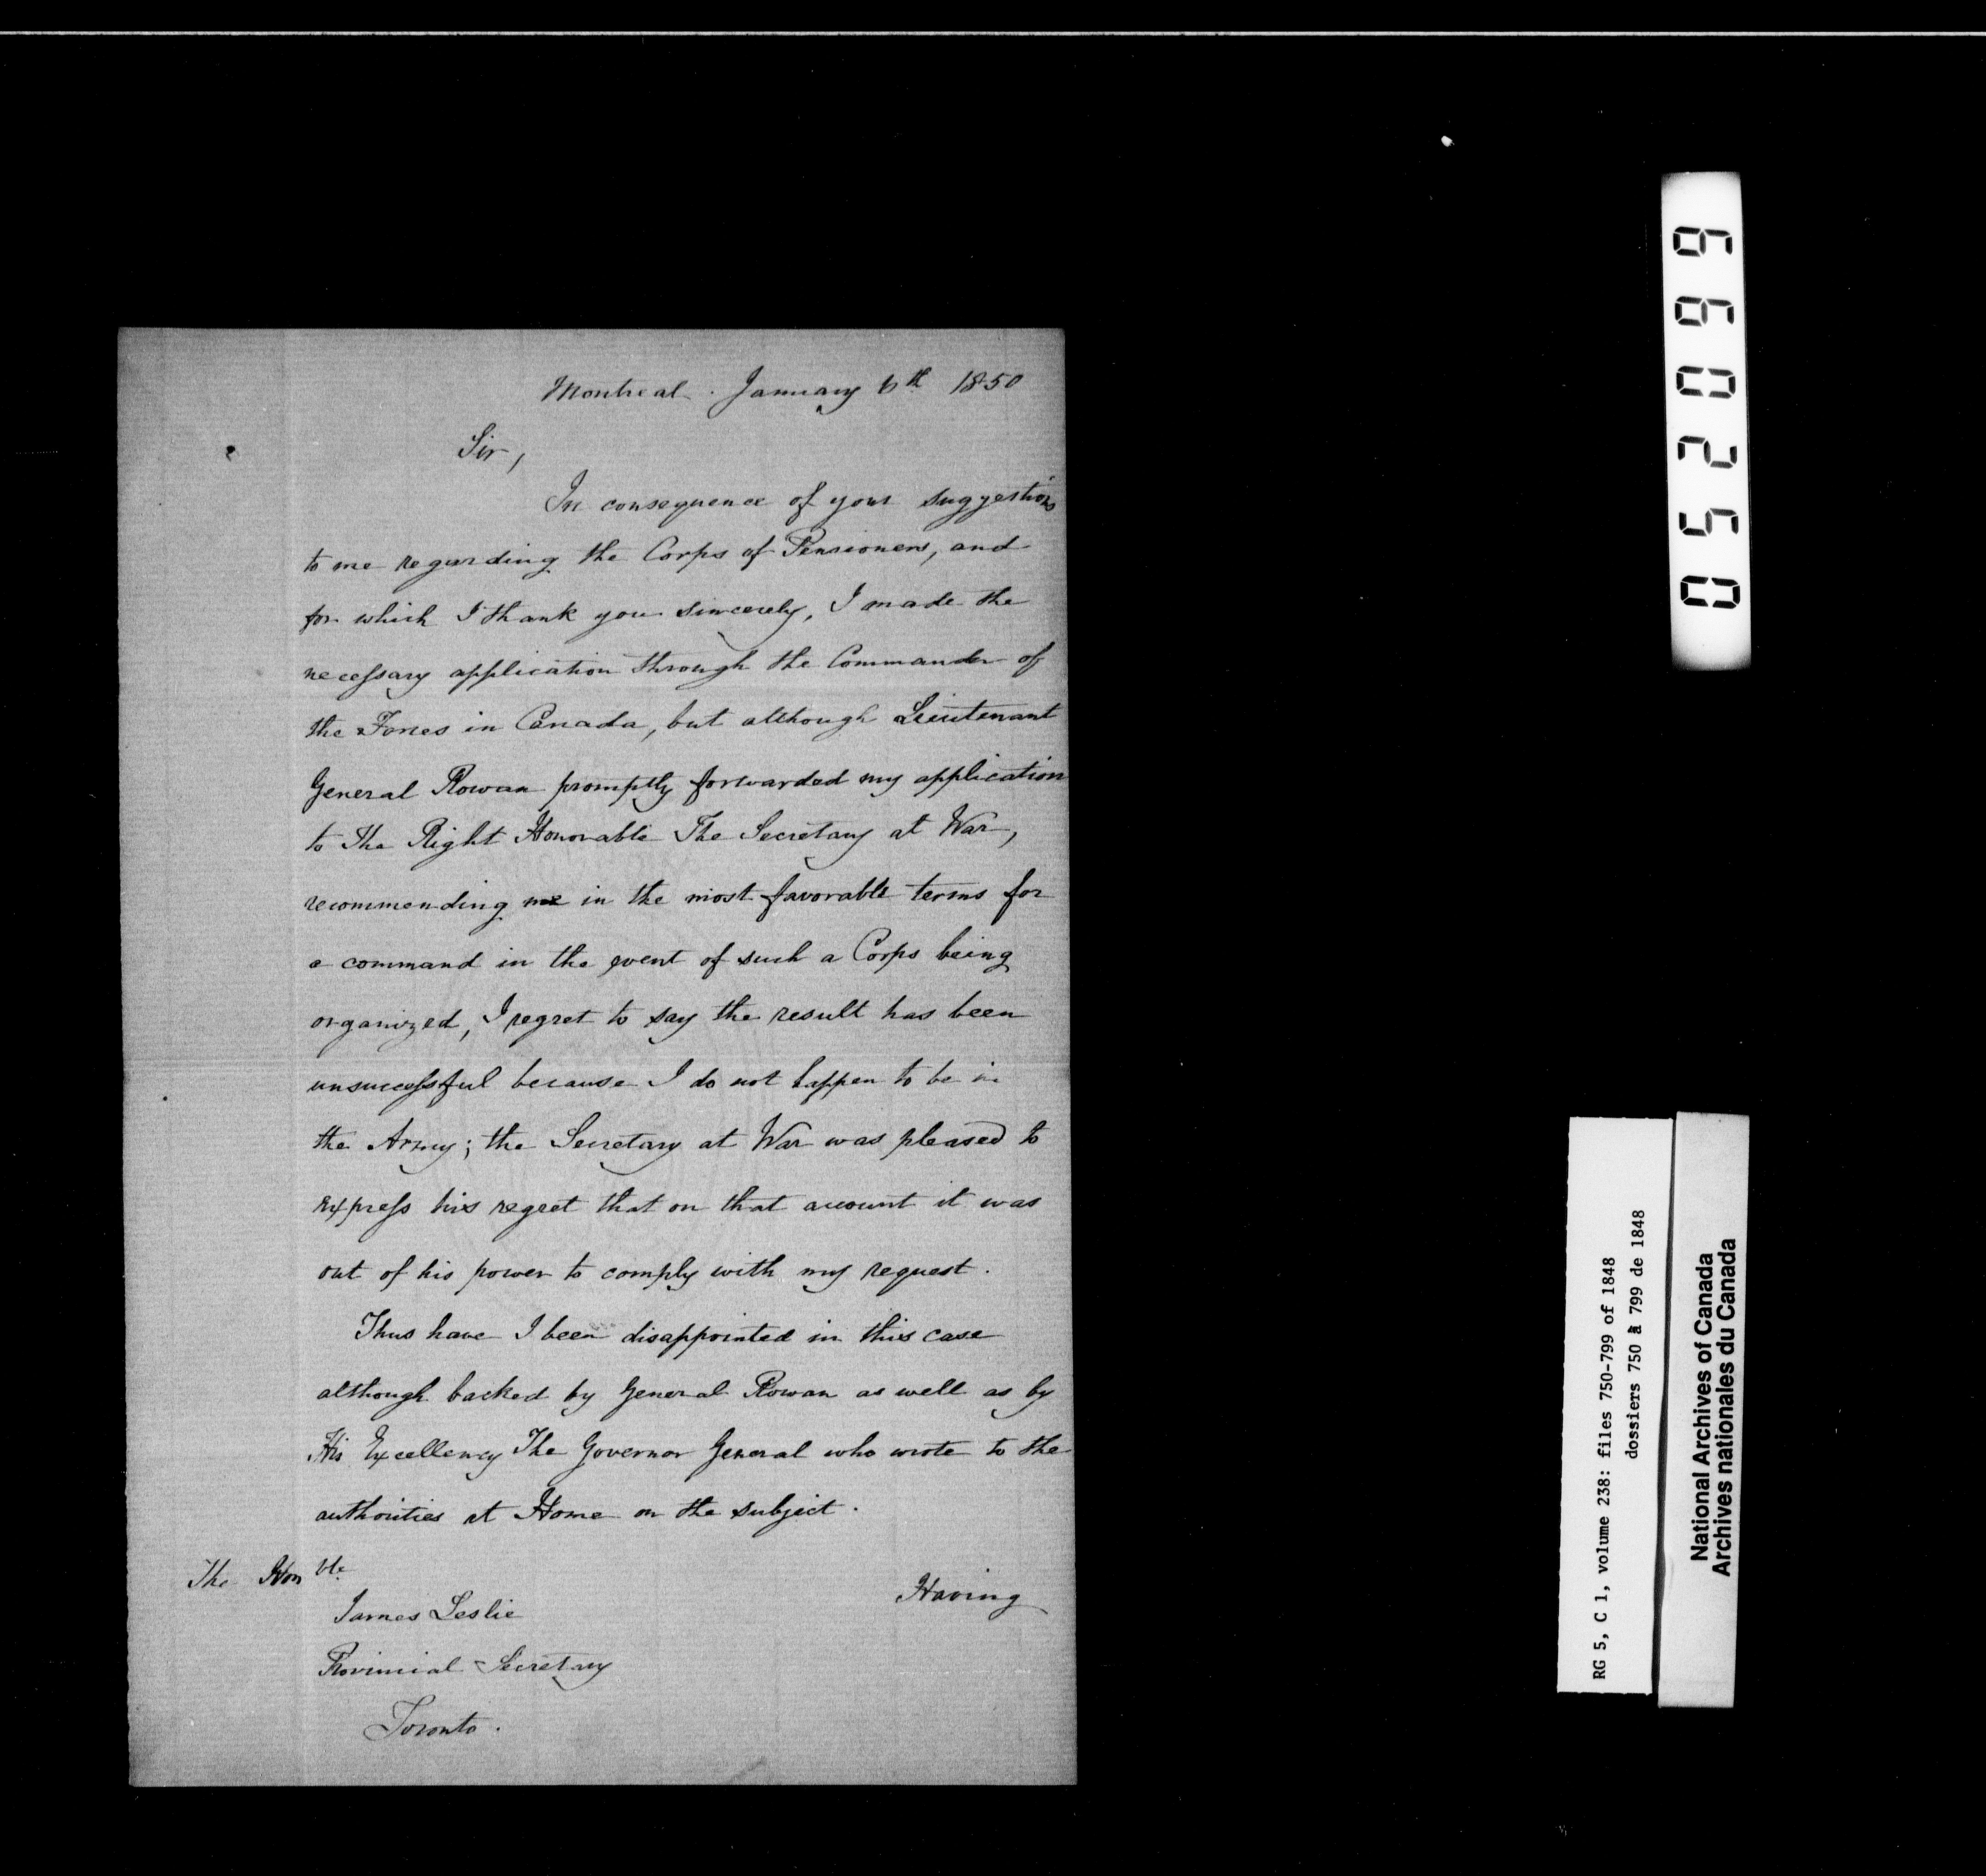 Montreal. January 6th 1850
Sir,
In consequence of your suggestions
to me regarding the Corps of Pensioners, and
for which I thank you sincerely, I made the
necessary application through the Commander of
the Forces in Canada, but although Lieutenant
General Rowan promptly forwarded my application
to The Right Honorable The Secretary at War,
recommending me in the most favorable terms for
a command in the event of such a Corps being
organized, I regret to say the result has been
unsuccessful because I do not happen to be in
the Army; the Secretary at War was pleased to
express his regret that on that account it was
out of his power to comply with my request.
Thus have I been disappointed in this case
although backed by General Rowan as well as by
His Excellency The Governor General who wrote to the
authorities at Home on the subject.
Having
The Honble
James Leslie
Provincial Secretary
Toronto.
052099
RG 5, C 1, volume 238: files 750-799 of 1848
dossiers 750 à 799 de 1848
National Archives of Canada
Archives nationales du Canada